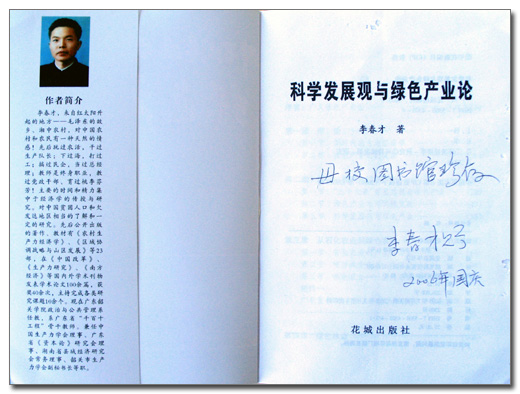 作者简介
李春才，来自红太阳升
起的地方——毛泽东的故
乡，湘中农村，对中国农
村和农民有一种天然的情
感！先后扰过农活，干过
生产队长；下过海，打过
工；搞过民企，当过总经
理；教师是终身职业，教
过党政干部，育过桃李芬
芳！主要的时间和精力集
中于经济学的传授与研
究，对中国贫困人口和欠
发达地区相当的了解和一
定的研究。先后公开出版
的著作、教材有《农村生
产力经济学》、《区域协
调战略与山区发展》等23
部，在《中国改革》、
《生产力研究》、《南方
经济》等国内外学术刊物
发表学术论文100余篇，获
奖40余次，主持完成各类研
究课题10余个。现在广东韶
关学院政治与公共管理系
任教，系广东省“千百十
工程”骨干教师，兼任中
国生产力学会理事、广东
省《资本论》研究会理
事、湖南省县域经济研究
会常务理事、韶关市生产
力学会副秘书长等职。
科学发展观与绿色产业论
李春才 著
母校图书馆珍存
李春才
2006年国庆
花城出版社